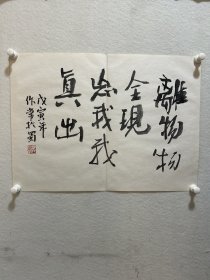 離物物
全現
忘我我
真出
戊寅年
作掌於蜀